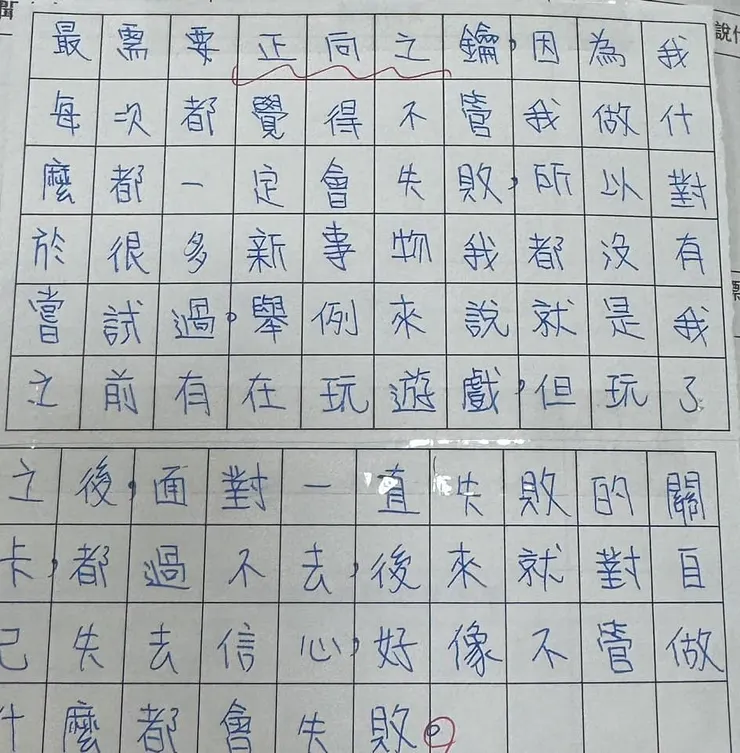 最需要正向之鑰，因為我
每次都覺得不管我做什
麼都一定會失敗，所以對
於很多新事物我都沒有
嘗試過。舉例來說就是我
之前有在玩遊戲，但玩了
之後，面對一直失敗的關
卡，都過不去，後來就對自
己失去信心，好像不管做
什麼都會失敗。